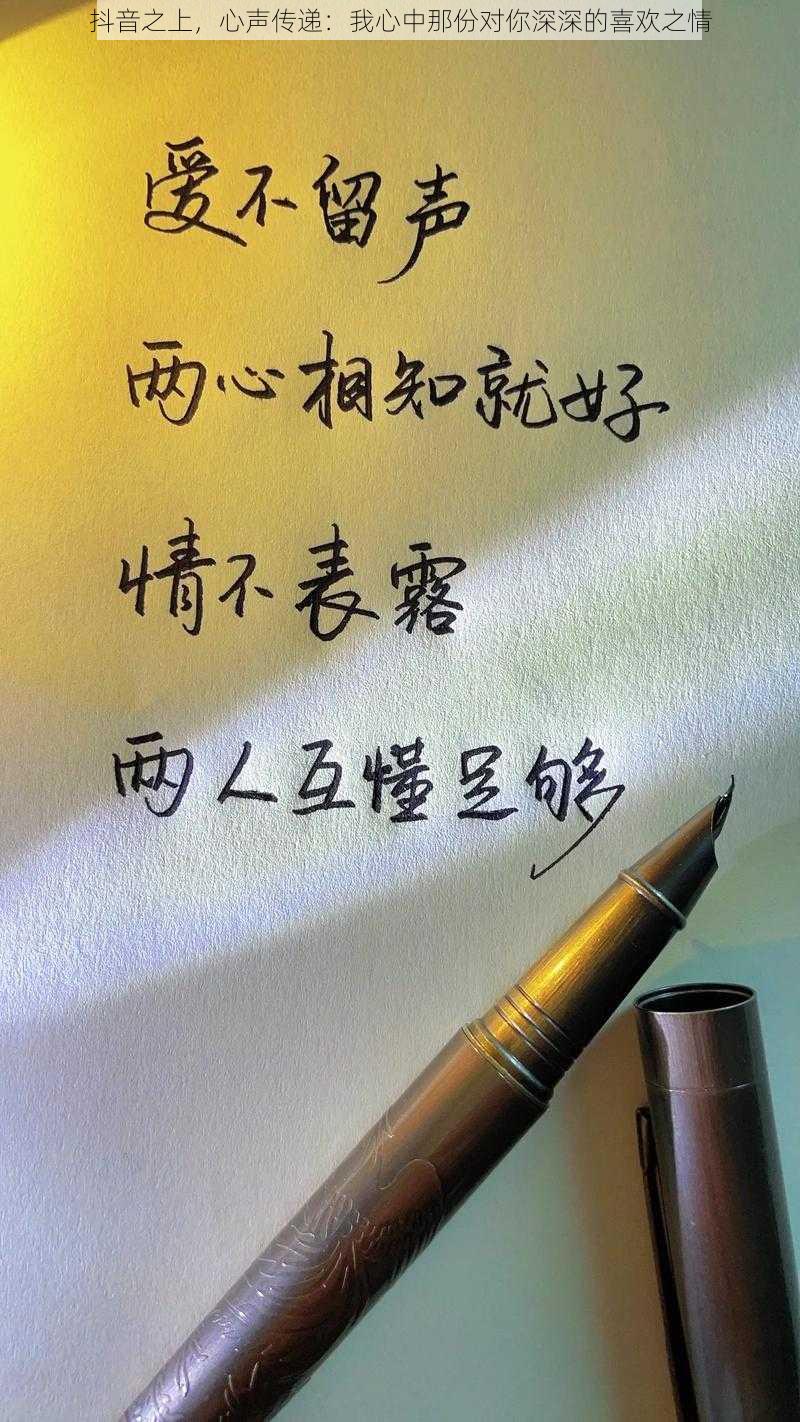 抖音之上，心声传递：我心中那份对你深深的喜欢之情
爱不留声
两心相知就好
情不表露
两人互懂足够